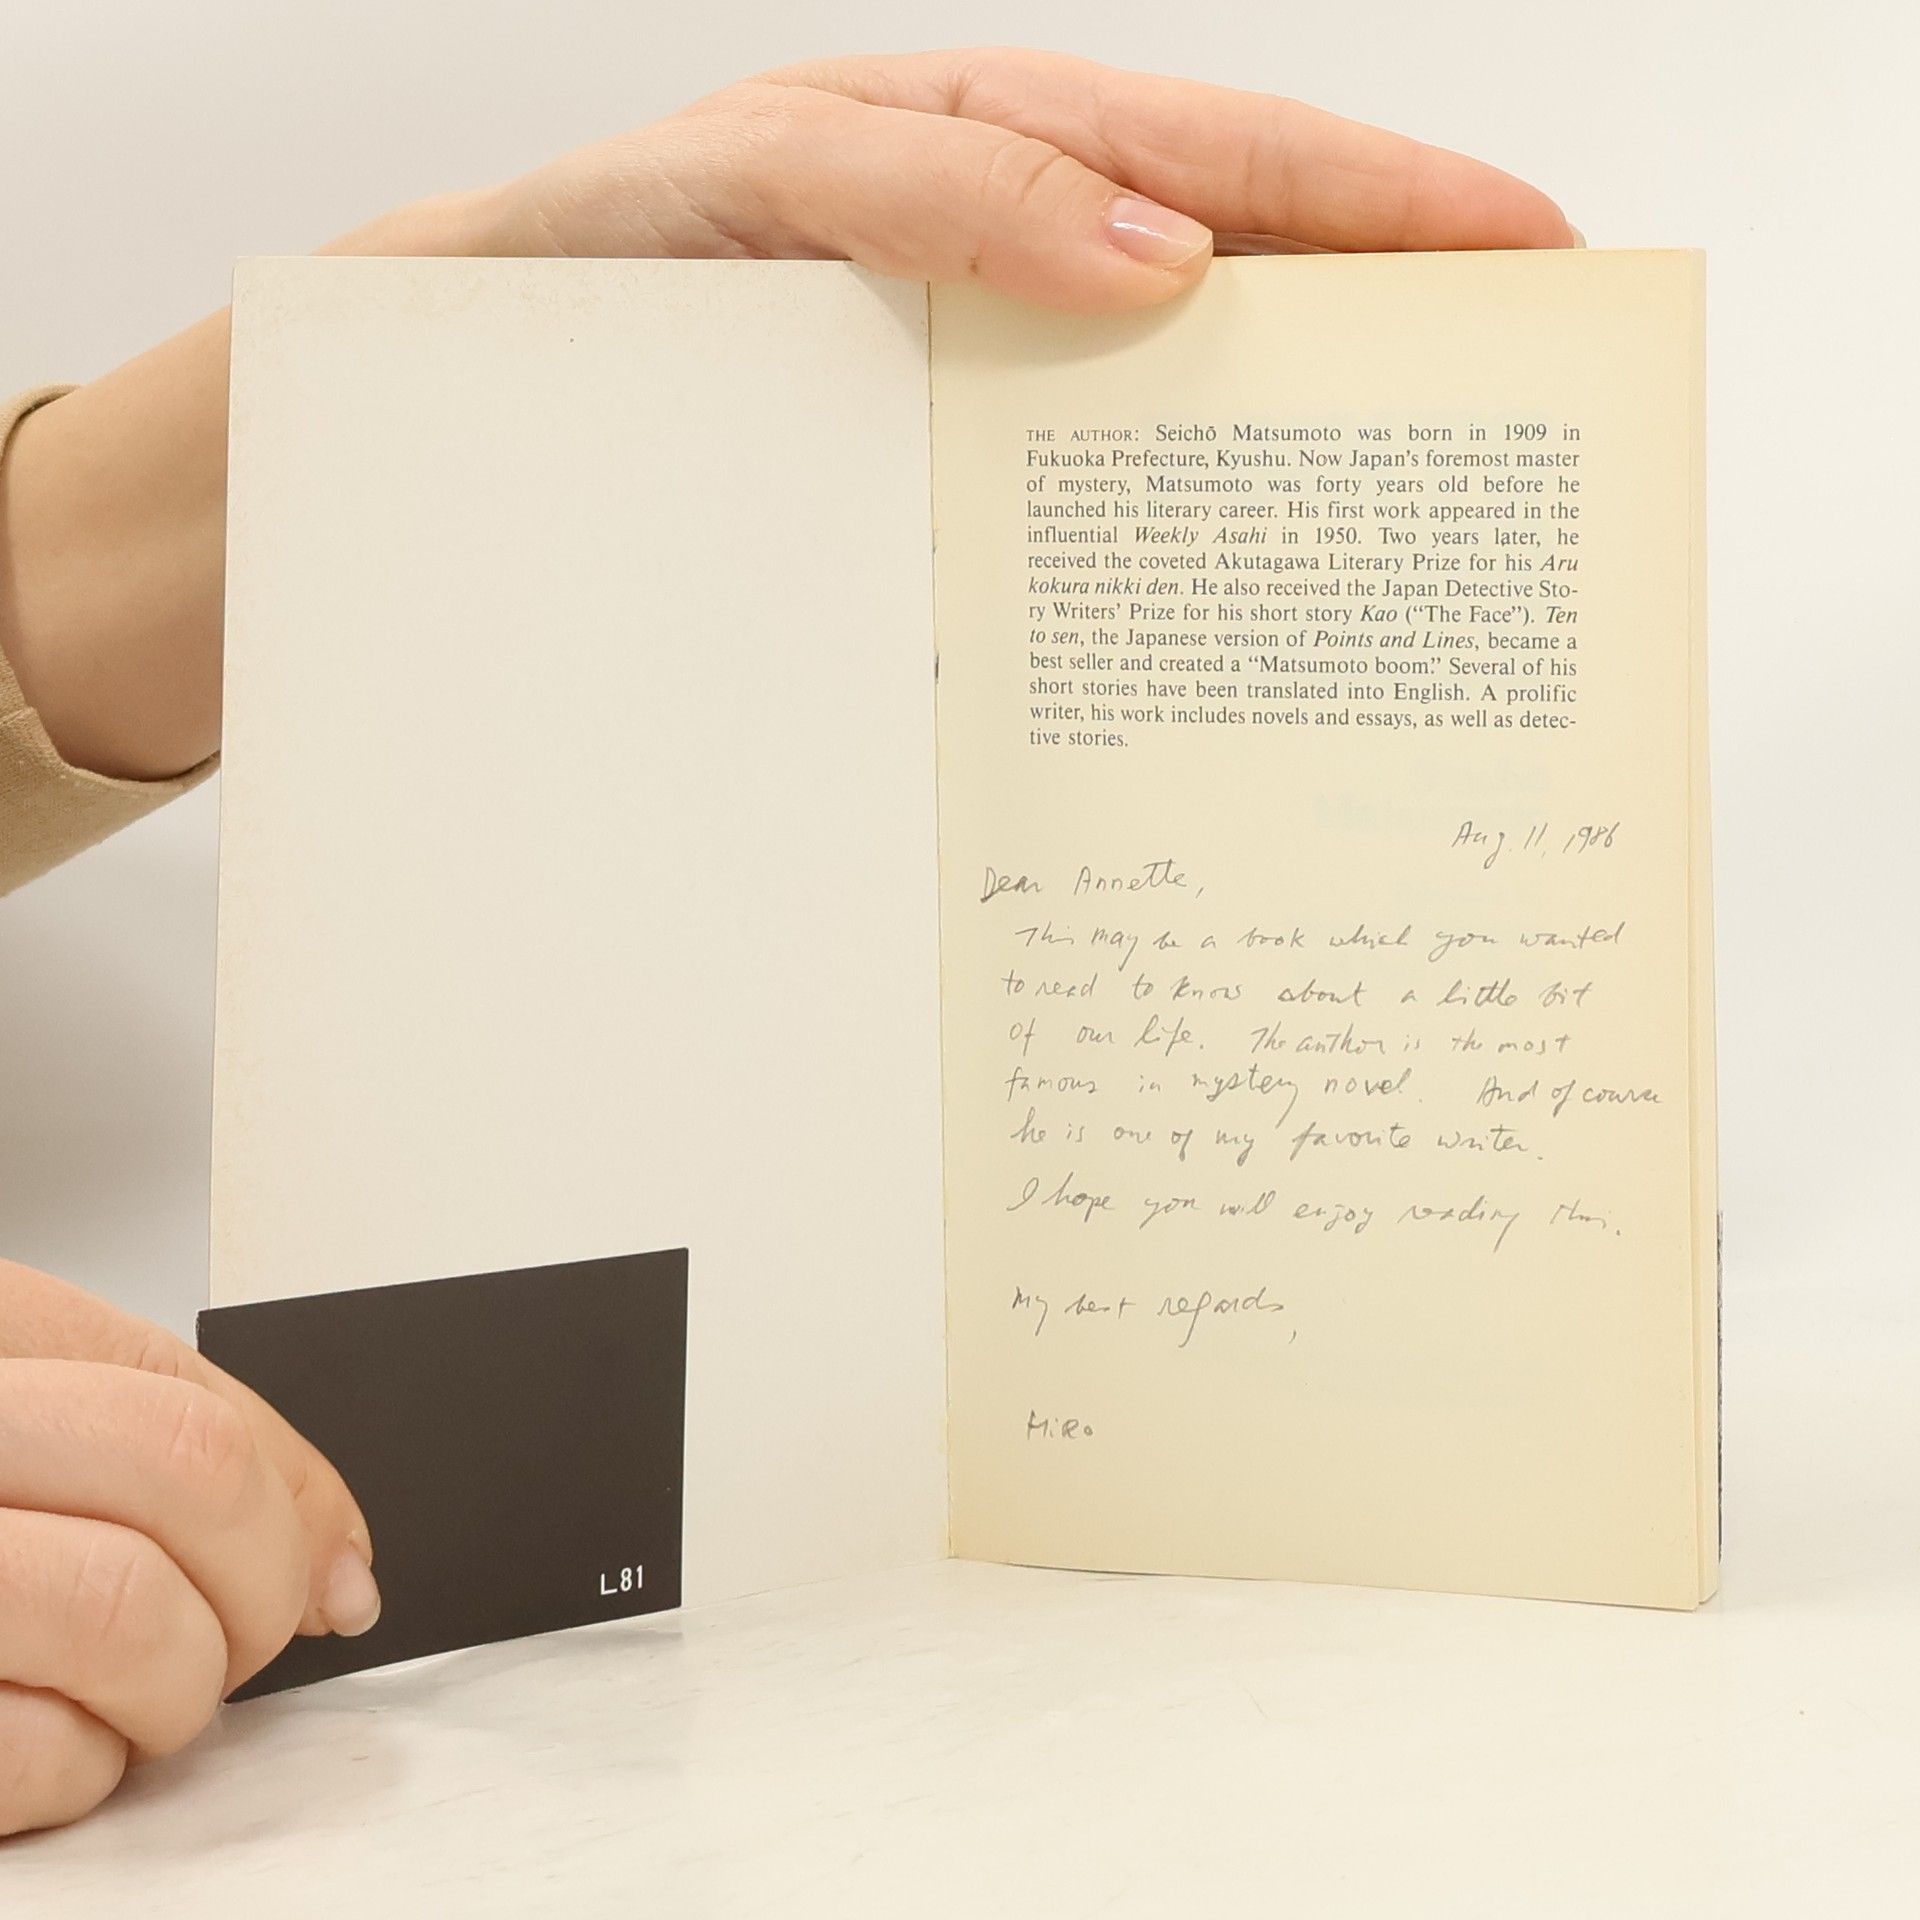 THE AUTHOR: Seichō Matsumoto was born in 1909 in
Fukuoka Prefecture, Kyushu. Now Japan's foremost master
of mystery, Matsumoto was forty years old before he
launched his literary career. His first work appeared in the
influential Weekly Asahi in 1950. Two years later, he
received the coveted Akutagawa Literary Prize for his Aru
kokura nikki den. He also received the Japan Detective Sto-
ry Writers' Prize for his short story Kao (“The Face”). Ten
to sen, the Japanese version of Points and Lines, became a
best seller and created a “Matsumoto boom.” Several of his
short stories have been translated into English. A prolific
writer, his work includes novels and essays, as well as detec-
tive stories.
Aug. 11, 1986
Dear Annette,
This may be a book which you wanted
to read to know about a little bit
of our life. The author is the most
famous in mystery novel. And of course
he is one of my favorite writer.
I hope you will enjoy reading this.
My best regards,
HIRo
L81